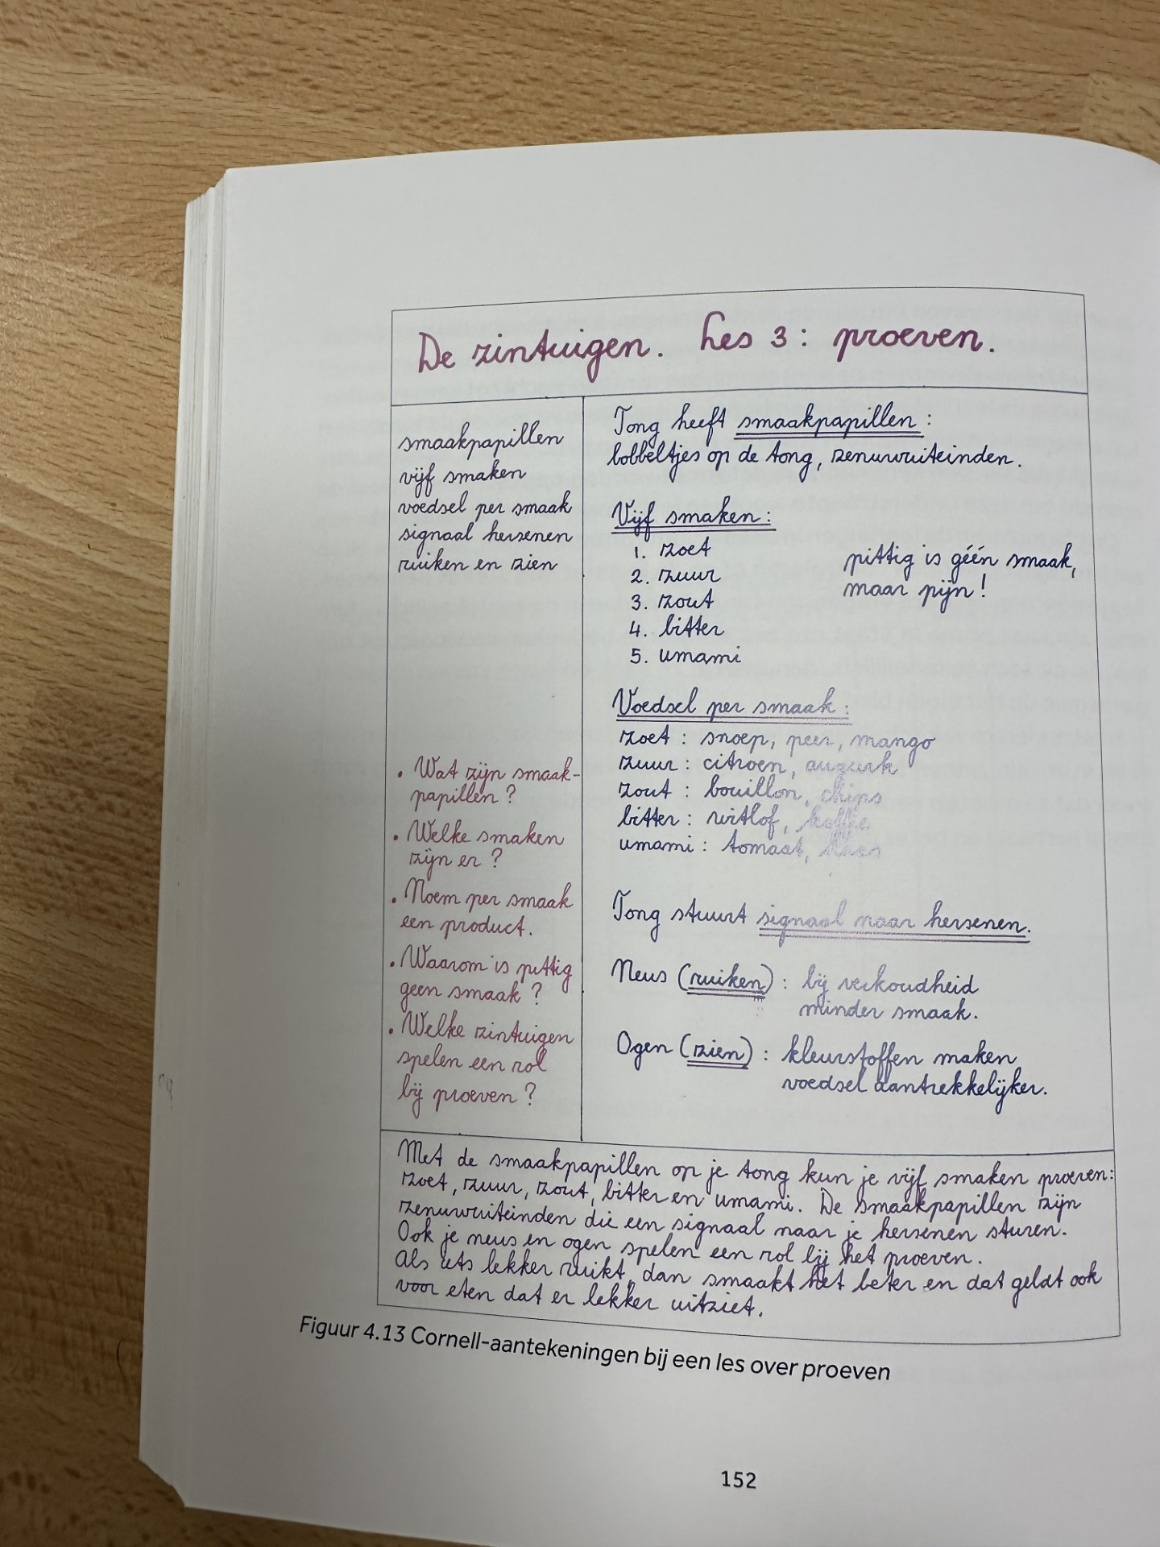 De zintuigen. Les 3: proeven.
smaakpapillen
vijf smaken
voedsel per smaak
signaal hersenen
ruiken en zien
• Wat zijn smaak-
papillen?
• Welke smaken
zijn er?
• Noem per smaak
een product.
• Waarom is pittig
geen smaak?
• Welke zintuigen
spelen een rol
bij proeven?
Tong heeft smaakpapillen:
bobbeltjes op de tong, zenuwuiteinden.
Vijf smaken:
1. zoet
2. zuur
3. zout
4. bitter
5. umami
pittig is géén smaak,
maar pijn!
Voedsel per smaak:
zoet: snoep, peer, mango
zuur: citroen, augurk
zout: bouillon, chips
bitter: witlof, koffie
umami: tomaat, kaas
Tong stuurt signaal naar hersenen.
Neus (ruiken): bij verkoudheid
minder smaak.
Ogen (zien): kleurstoffen maken
voedsel aantrekkelijker.
Met de smaakpapillen op je tong kun je vijf smaken proeven:
zoet, zuur, zout, bitter en umami. De smaakpapillen zijn
zenuwuiteinden die een signaal naar je hersenen sturen.
Ook je neus en ogen spelen een rol bij het proeven.
Als iets lekker ruikt, dan smaakt het beter en dat geldt ook
voor eten dat er lekker uitziet.
Figuur 4.13 Cornell-aantekeningen bij een les over proeven
152